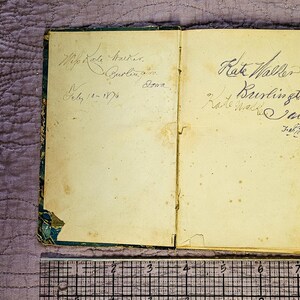 Miss Kate Walker
Burlington
Iowa
July 10 - 1876
Kate Walker
Burlingt
Kate Walk
1 2 3 4 5 6 7